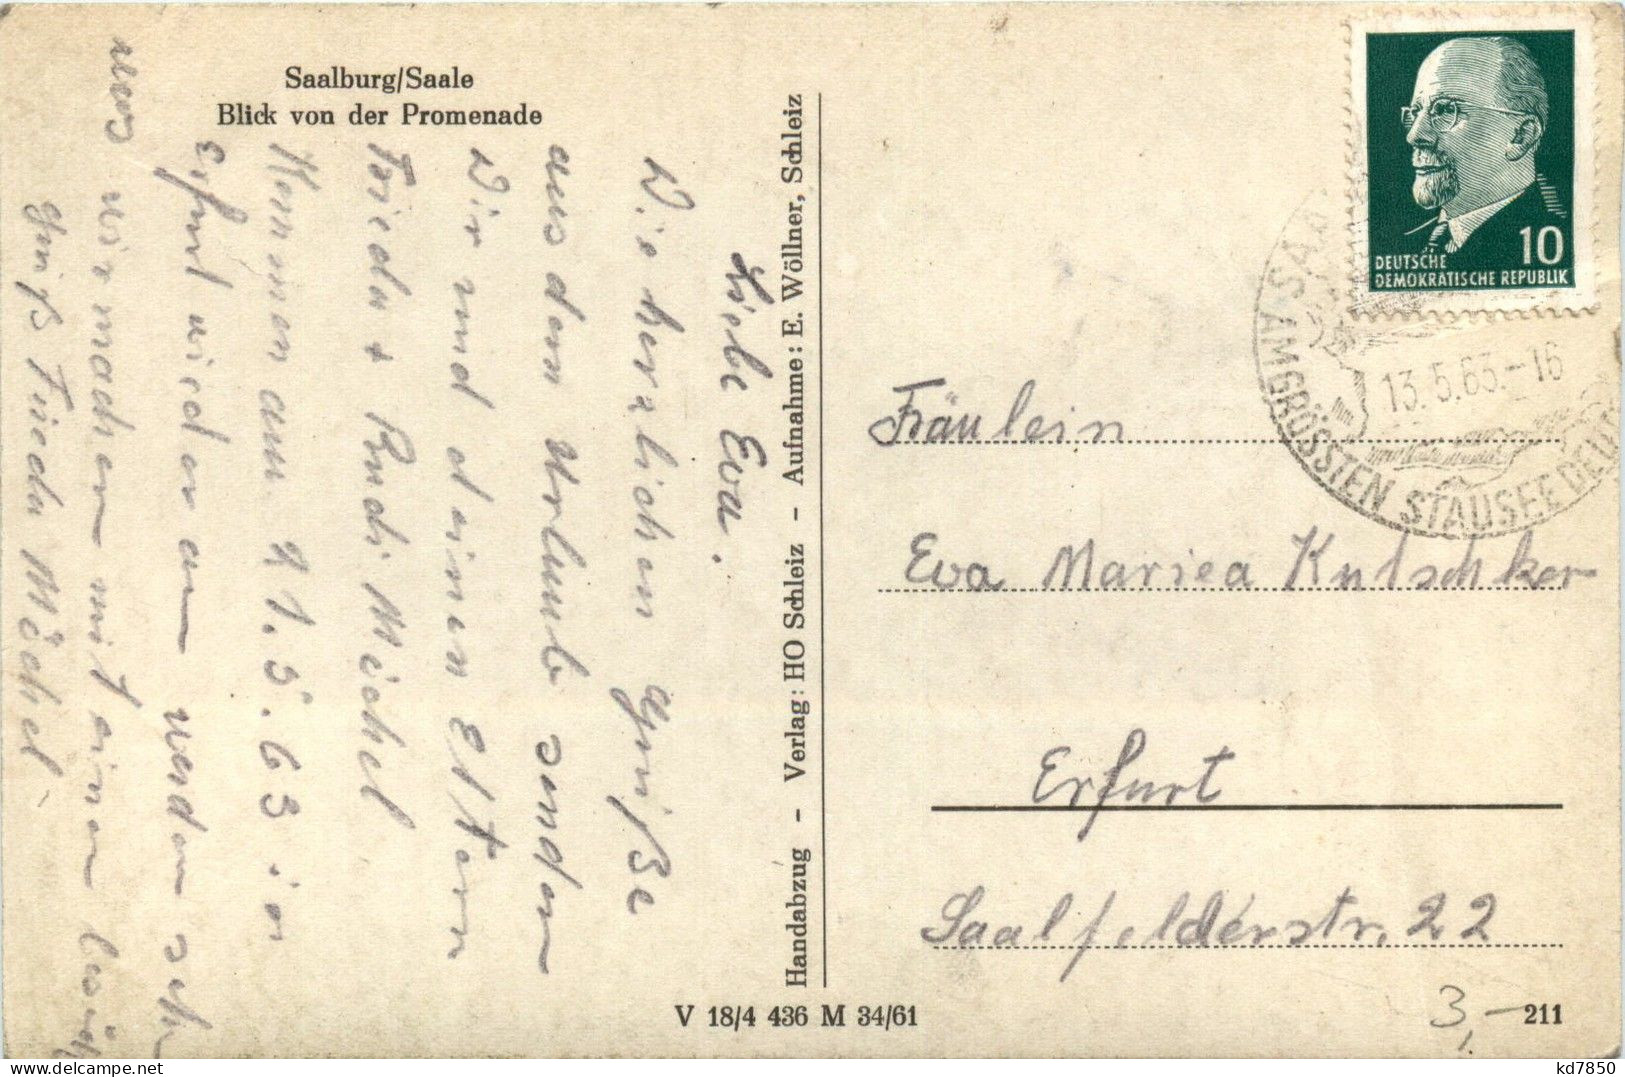 Saalburg/Saale
Blick von der Promenade
Liebe Eva.
Die herzlichen Grüße
aus dem Urlaub senden
Dir und deinen Eltern
Frieda + Rudi Michel
Kommen am 21.5.63 in
Erfurt wieder an werden seh
wir machen mit einen
Gruß Frieda Michel
Handabzug - Verlag: HO Schleiz - Aufnahme: E. Wöllner, Schleiz
DEUTSCHE
DEMOKRATISCHE REPUBLIK
10
13.5.63.-16
AM GRÖSSTEN STAUSEE DEUT
Fräulein
Eva Mariea Kutschker
Erfurt
Saalfelderstr. 22
V 18/4 436 M 34/61
3,-
211
kd7850